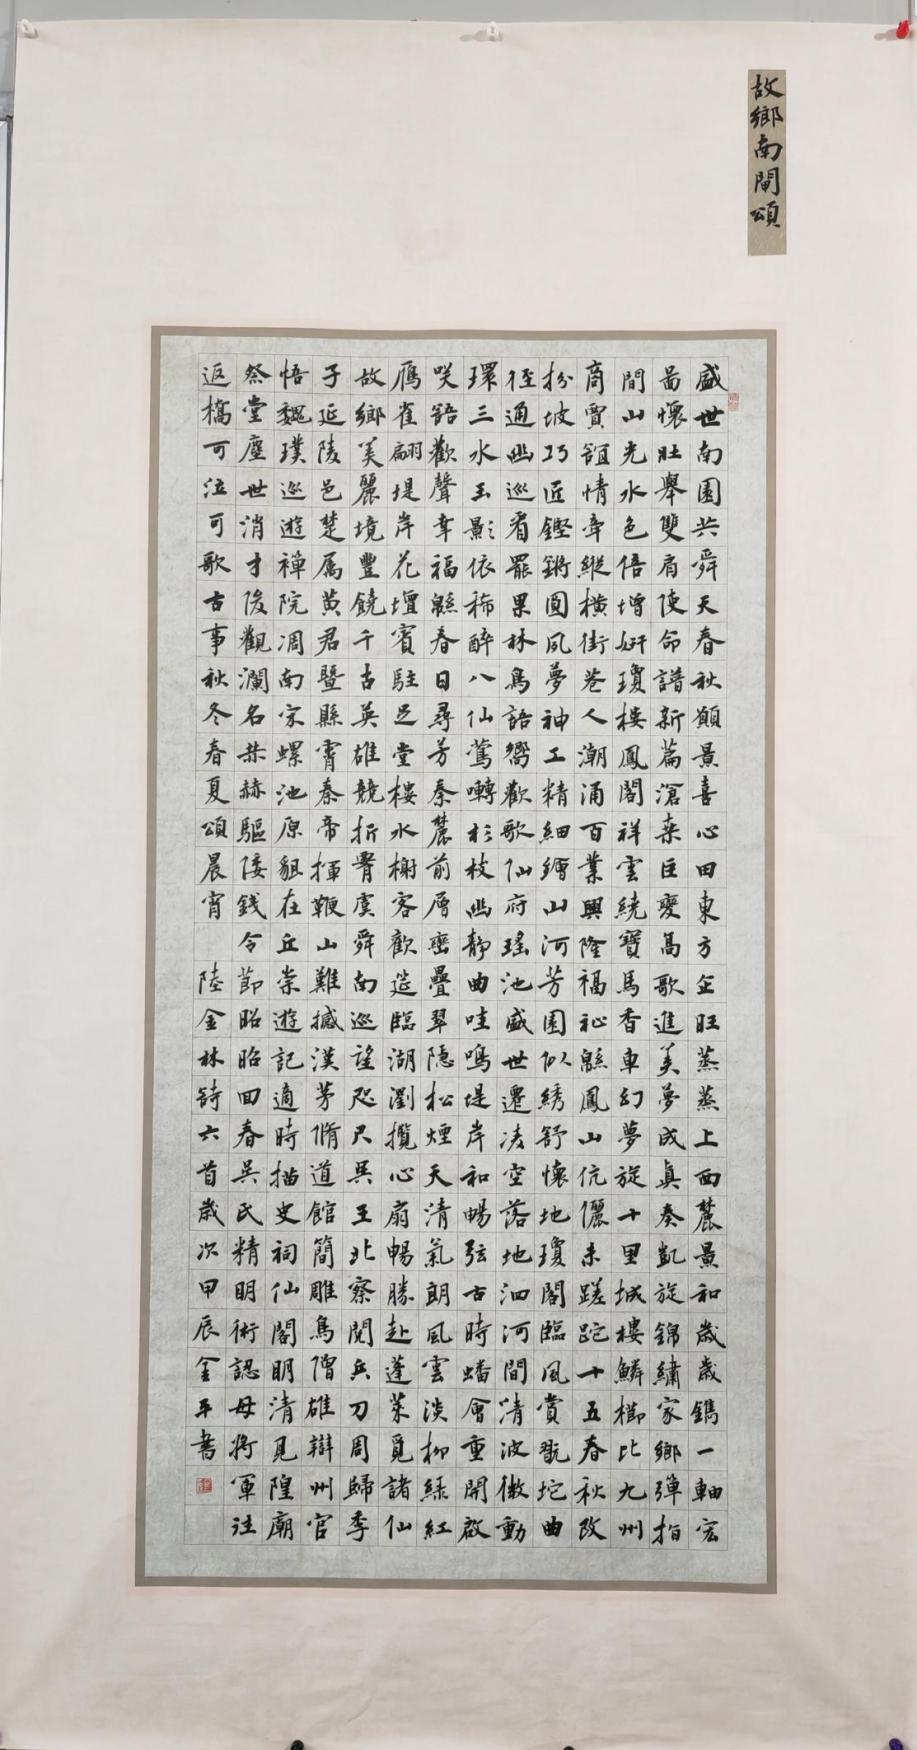 故鄉南閘頌
盛世南園共舜天春秋願景喜心田東方企旺蒸蒸上西麓景和歲歲鐫一軸宏
啚懷壯舉雙肩使命譜新篇滄桒巨變高歌進美夢成真奏凱旋錦繡家鄉彈指
間山光水色倍增妍瓊樓鳳閣祥雲繞寶馬香車幻夢旋十里城樓鱗櫛比九州
商賈誼情牽縱橫街巷人潮涌百業興隆福祉緜鳳山伉儷未蹉跎十五春秋改
扮坡巧匠鏗鏘圓夙夢神工精細繪山河芳園似綉舒懷地瓊閣臨風賞翫坨曲
徑通幽巡看罷果林鳥語嚮歡歌仙府瑤池盛世遷凌空落地泗河間清波微動
環三水玉影依稀醉八仙鶯囀杉枝幽靜曲哇鳴堤岸和暢弦古時蟠會重開啟
咲語歡聲幸福緜春日尋芳秦麓前層巒疊翠隱松煙天清氣朗風雲淡柳綠紅
鴈雀翩堤岸花壇賓駐足堂樓水榭客歡筵臨湖瀏攬心扇暢勝赴蓬萊覓諸仙
故鄉美麗境豐饒千古英雄競折臂虞舜南巡望咫尺吳王北察閱兵刀周歸季
子延陵邑楚属黃君暨縣霄秦帝揮鞭山難撼漢茅脩道館簡雕鳥僧雄辯州官
悟魏璞巡遊禪院凋南宋螺池原貌在丘崇遊記適時描史祠仙閣明清見隍廟
祭堂塵世消才俊觀瀾名恭赫驅倭錢令節昭昭回春吳氏精明術認母將軍註
返橋可泣可歌古事秋冬春夏頌晨宵 陸金林詩六首歲次甲辰金平書